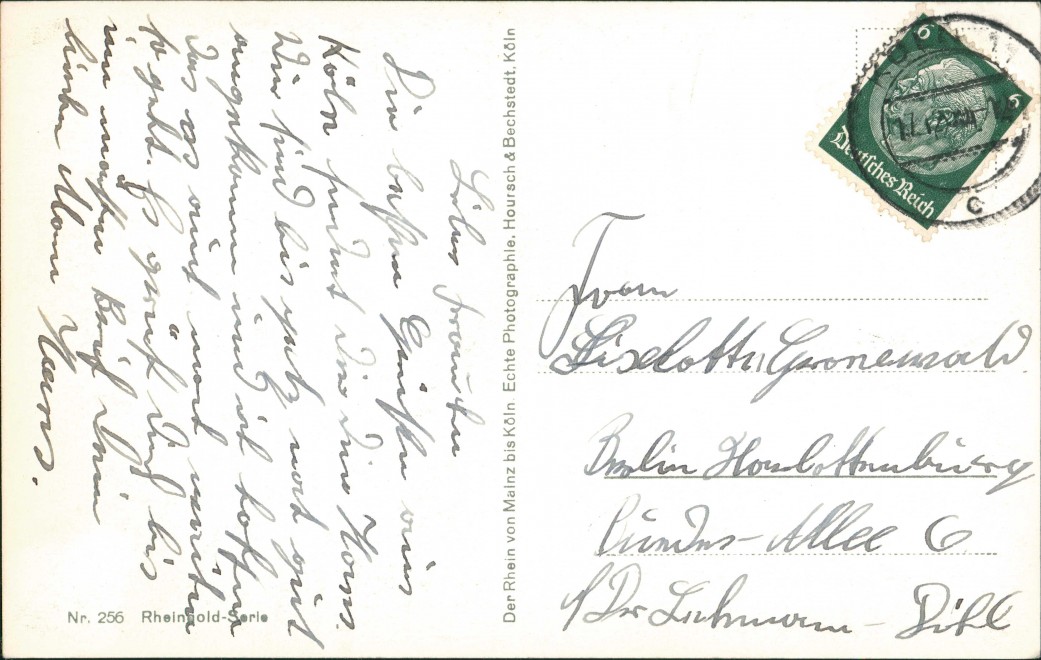 Liebes Frauchen
Die besten Grüße aus
Köln sendet dir dein Hans.
Wir sind bis jetzt noch gut
angekommen und ich hoffen
das es auch noch weiter
so geht. Es grüßt dich bis
zum nächsten Brief dein
lieber Mann Hans.
Nr. 256 Rheingold-Serie
Der Rhein von Mainz bis Köln. Echte Photographie. Hoursch & Bechstedt. Köln
6
6
Deutsches Reich
KÖLN
c
Frau
Liselotte Gronewald
Berlin Charlottenburg
Allee 6